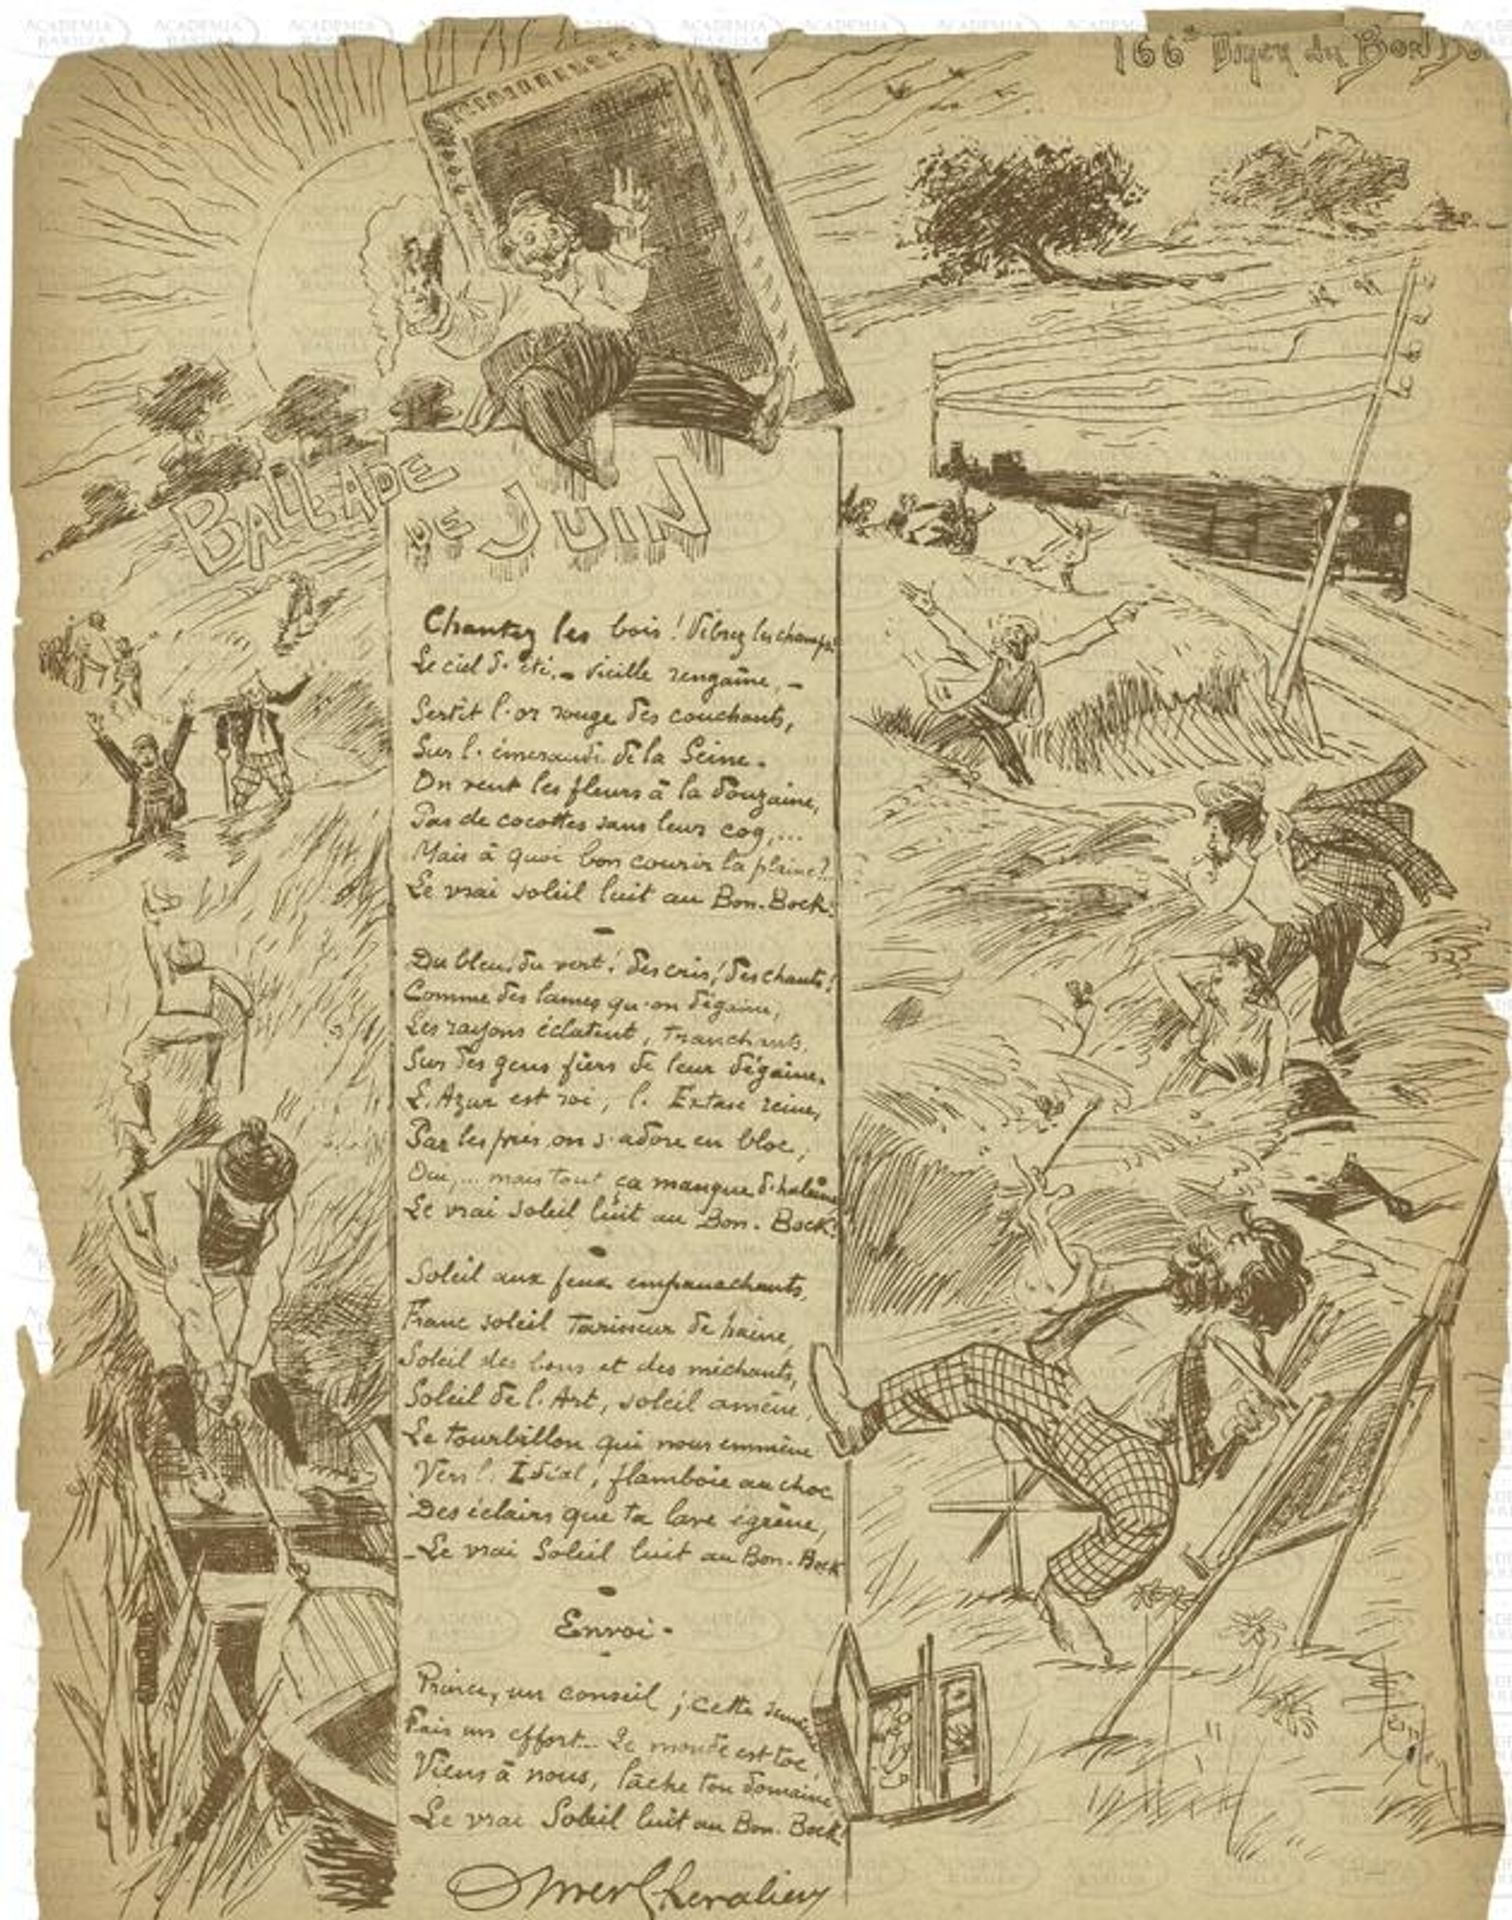 166e Diner du Bon Bo
BALLADE
DE JUIN
Chantez les bois ! Vibrez les champs !
Le ciel d'été, - vieille rengaîne, -
Sertit l'or rouge des couchants,
Sur l'émeraude de la Seine.
On veut les fleurs à la douzaine,
Pas de cocottes sans leur coq, ...
Mais à quoi bon courir la plaine ?..
Le vrai soleil luit au Bon-Bock !
Du bleu, du vert ! des cris ! des chants !
Comme des lames qu'on dégaine,
Les rayons éclatent, tranchants,
Sur des gens fiers de leur dégaine.
L'Azur est roi, l'Extase reine,
Par les prés on s'adore en bloc ;
Oui, ... mais tout ça manque d'haleine
Le vrai soleil luit au Bon-Bock !
Soleil aux feux empanachants,
Franc soleil tarisseur de haine,
Soleil des bons et des méchants,
Soleil de l'Art, soleil amène,
Le tourbillon qui nous emmène
Vers l'Idéal, flamboie au choc
Des éclairs que ta lave égrène,
- Le vrai Soleil luit au Bon-Bock
Envoi -
Prince, un conseil ; cette semaine
Fais un effort.. Le monde est toc
Viens à nous, lâche ton domaine
Le vrai Soleil luit au Bon-Bock !
Omer Chevalier